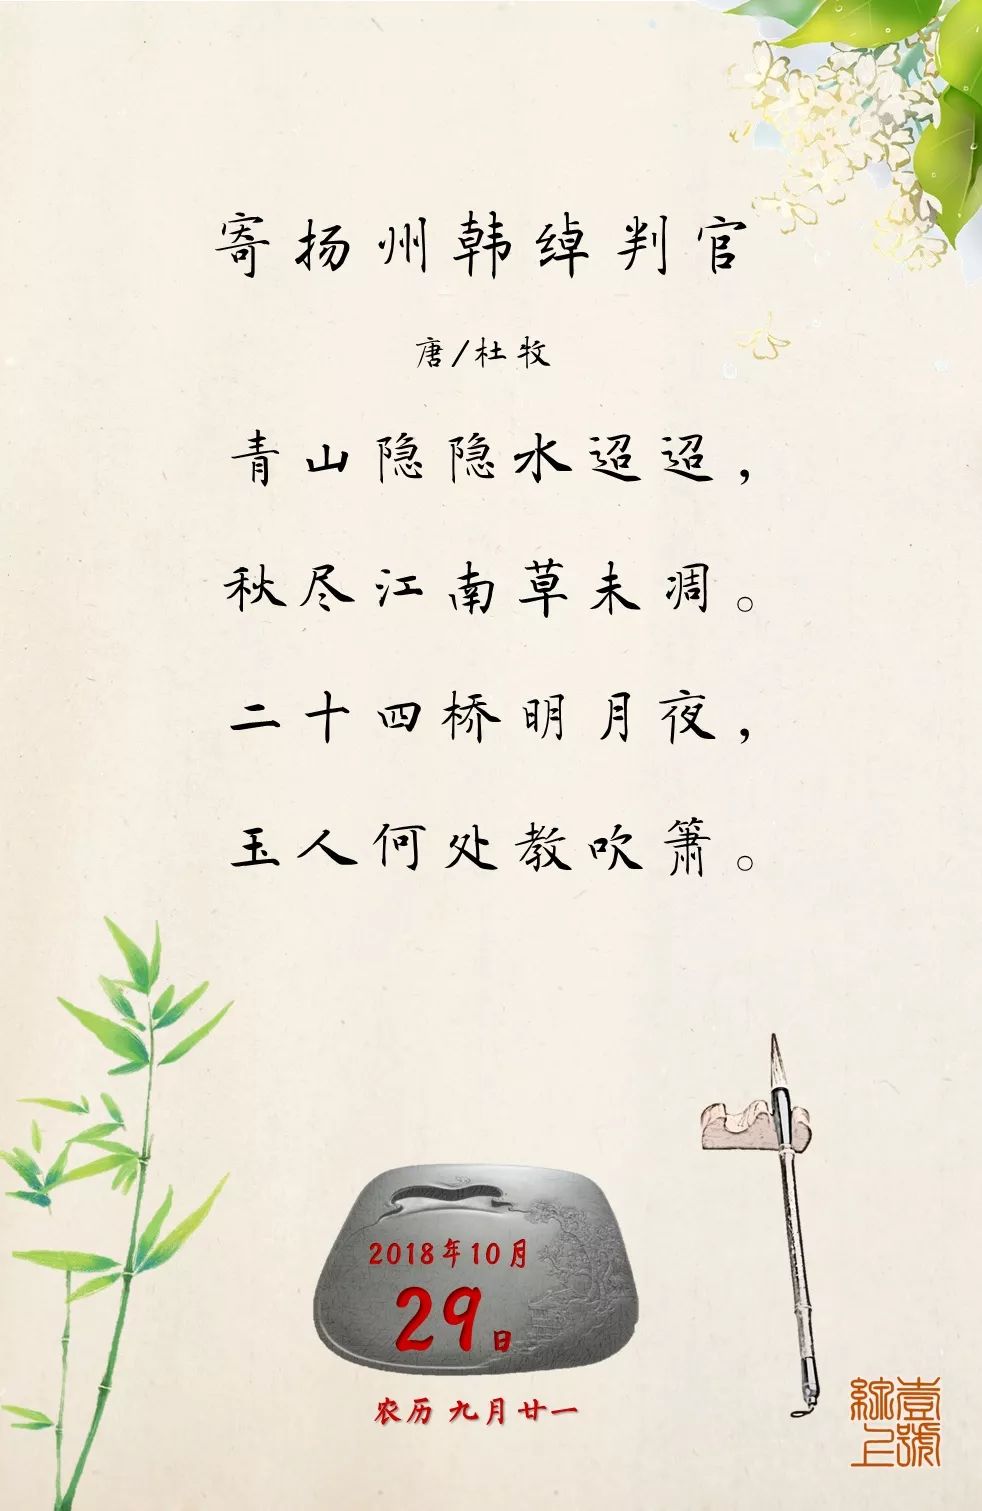 寄扬州韩绰判官
唐/杜牧
青山隐隐水迢迢，
秋尽江南草未凋。
二十四桥明月夜，
玉人何处教吹箫。
2018年10月
29日
农历 九月廿一
壹號
綜上